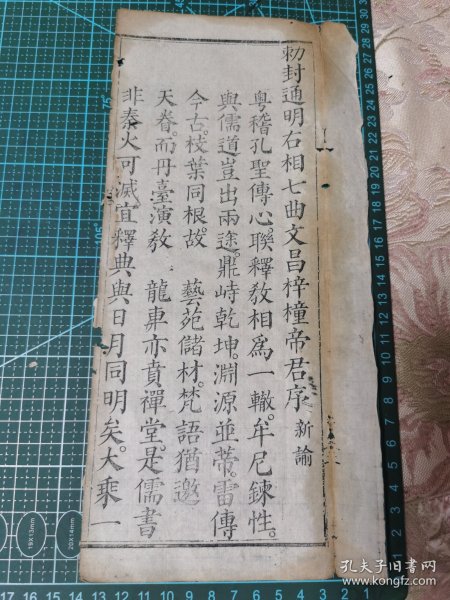 勅封通明右相七曲文昌梓橦帝君序 新諭
粤稽孔聖傳心。聯釋教相爲一轍。牟尼鍊性。
與儒道豈出兩途。鼎峙乾坤。淵源並蒂。雷傳
今古。枝葉同根。故 藝苑儲材。梵語猶邀
天眷。而丹臺演教 龍車亦賁禪堂。是儒書
非秦火可滅。宜釋典與日月同明矣。大乘一
孔夫子旧书网
www.kongfz.com
19X13mm
20X14mm